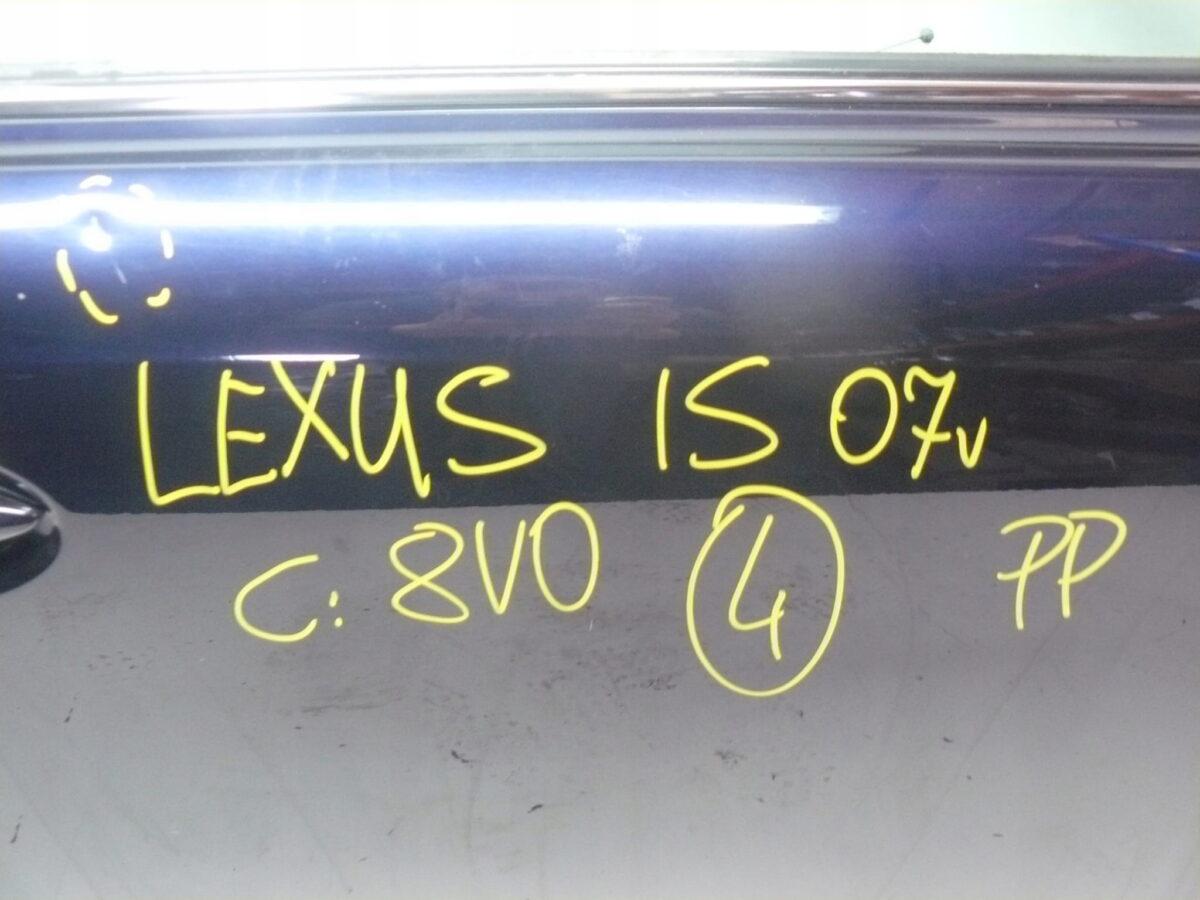 LEXUS IS 07v
C: 8V0 4 PP